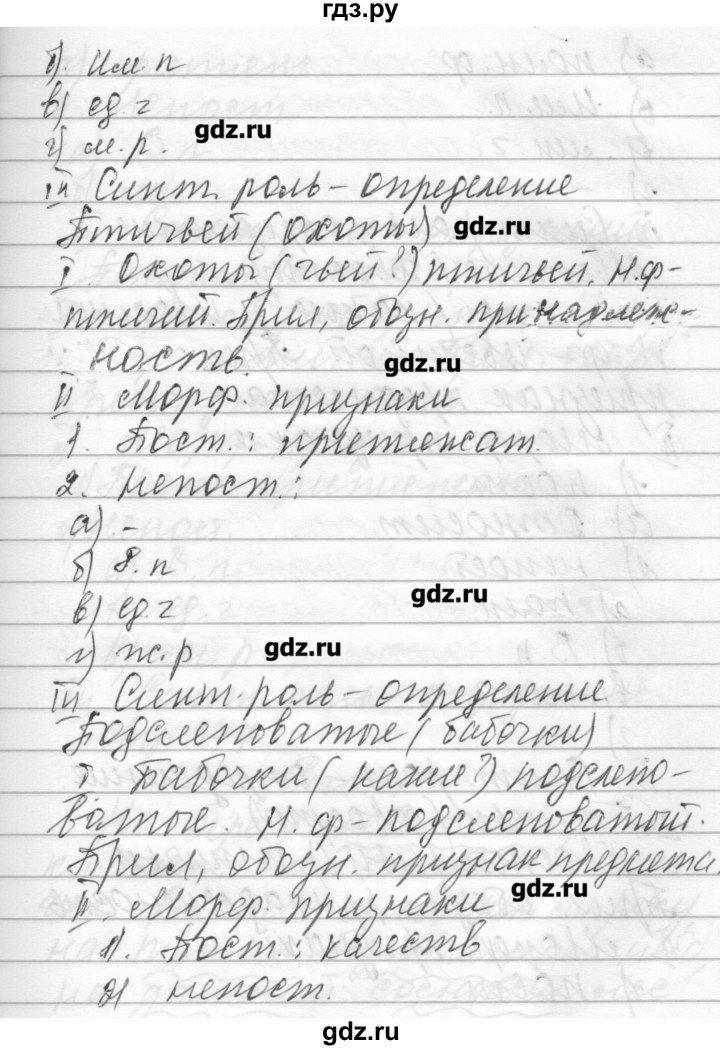 гдз.ру
б). Им. п
в) ед. ч
г) м. р.
gdz.ru
III Синт. роль - определение
Птичьей (охоты)
gdz.ru
I. Охоты (чьей?) птичьей. Н.ф-
птичий. Прил, обозн. принадлеж-
ность.
gdz.ru
II Морф. признаки
1. Пост.: притяжат.
2. непост.:
а) -
б) Р. п
в) ед. ч
gdz.ru
г) ж. р
gdz.ru
III Синт. роль - определение
Подслеповатые (бабочки)
I Бабочки (какие?) подслепо-
ватые. Н. ф - подслеповатый.
Прил, обозн. признак предмета.
II. Морф. признаки
gdz.ru
1). Пост.: качеств
2) непост.
gdz.ru